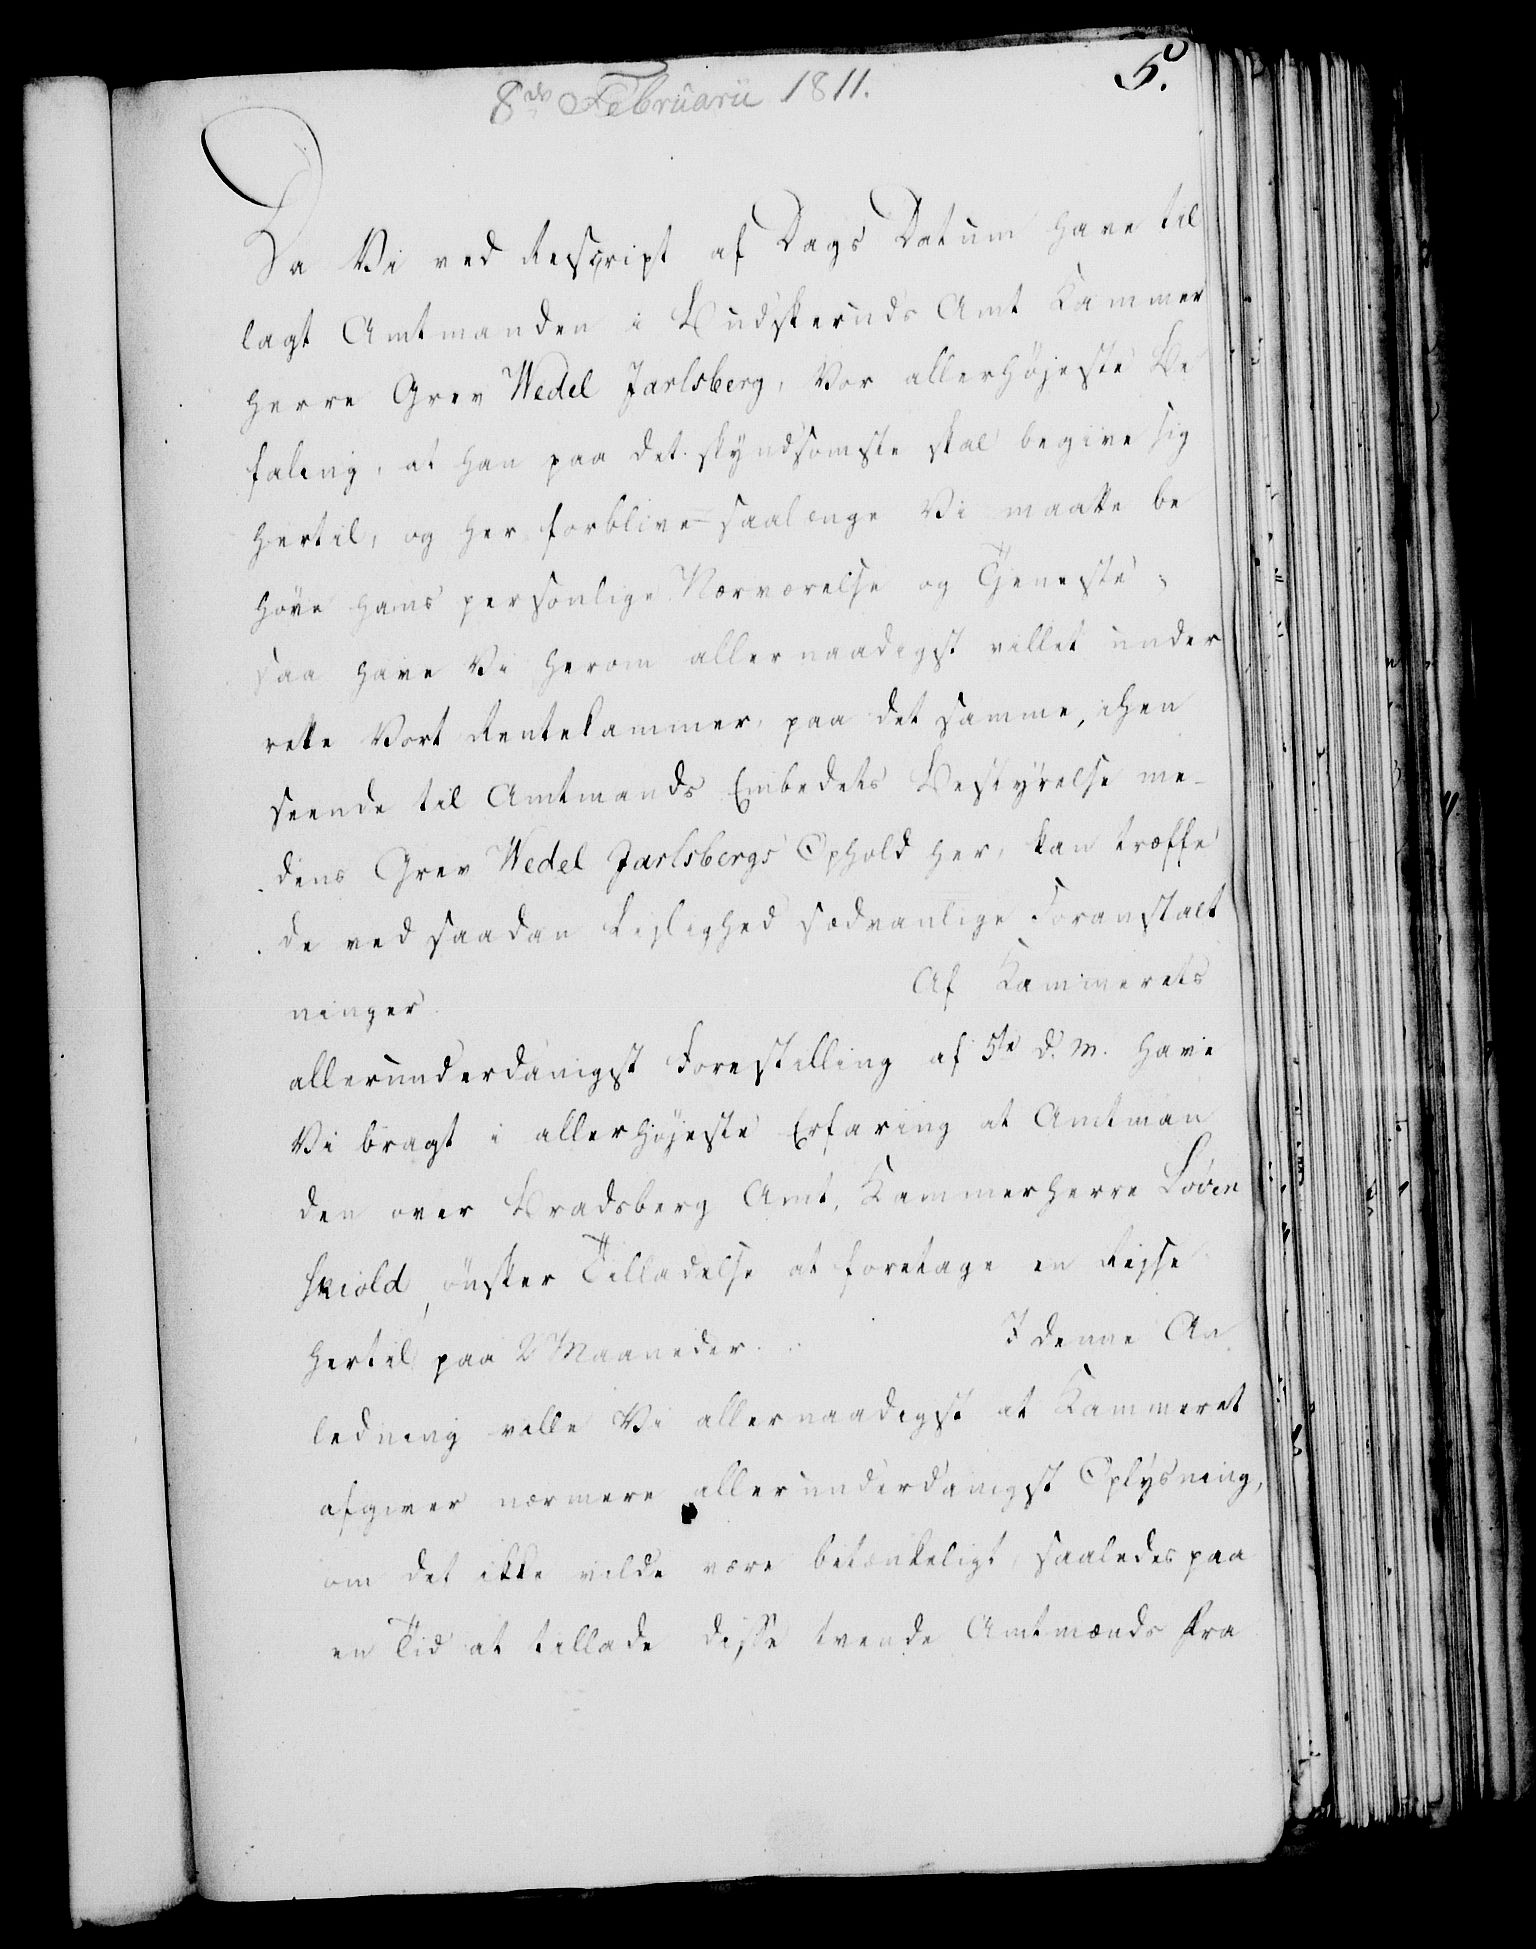 8de Februarii 1811.
5.
Da Vi ved Rescript af Dags Datum have til
lagt Amtmanden i Budskeruds Amt Kammer
herre Grev Wedel Jarlsberg, Vor allerhøjeste Be
faling, at han paa det skyndsomste skal begive sig
hertil, og her forblive saalænge Vi maatte be
høve hans personlige Nærværelse og Tjeneste;
saa have Vi herom allernaadigst villet under
rette Vort Rentekammer, paa det samme, ihen
seende til Amtmands Embedets Bestyrelse me-
dens Grev Wedel Jarlsbergs Ophold her, kan træffe
de ved saadan Lejlighed sædvanlige Foranstalt
ninger. Af Kammerets
allerunderdanigst Forestilling af 5te d. M. have
Vi bragt i allerhøjeste Erfaring at Amtman
den over Bradsberg Amt, Kammerherre Løven
skiold, ønsker Tilladelse at foretage en Rejse
hertil paa 2 Maaneder. I denne An
ledning ville Vi allernaadigst at Kammeret
afgiver nærmere allerunderdanigst Oplysning,
om det ikke vilde være betænkeligt, saaledes paa
en Tid at tillade disse tvende Amtmænds Fra